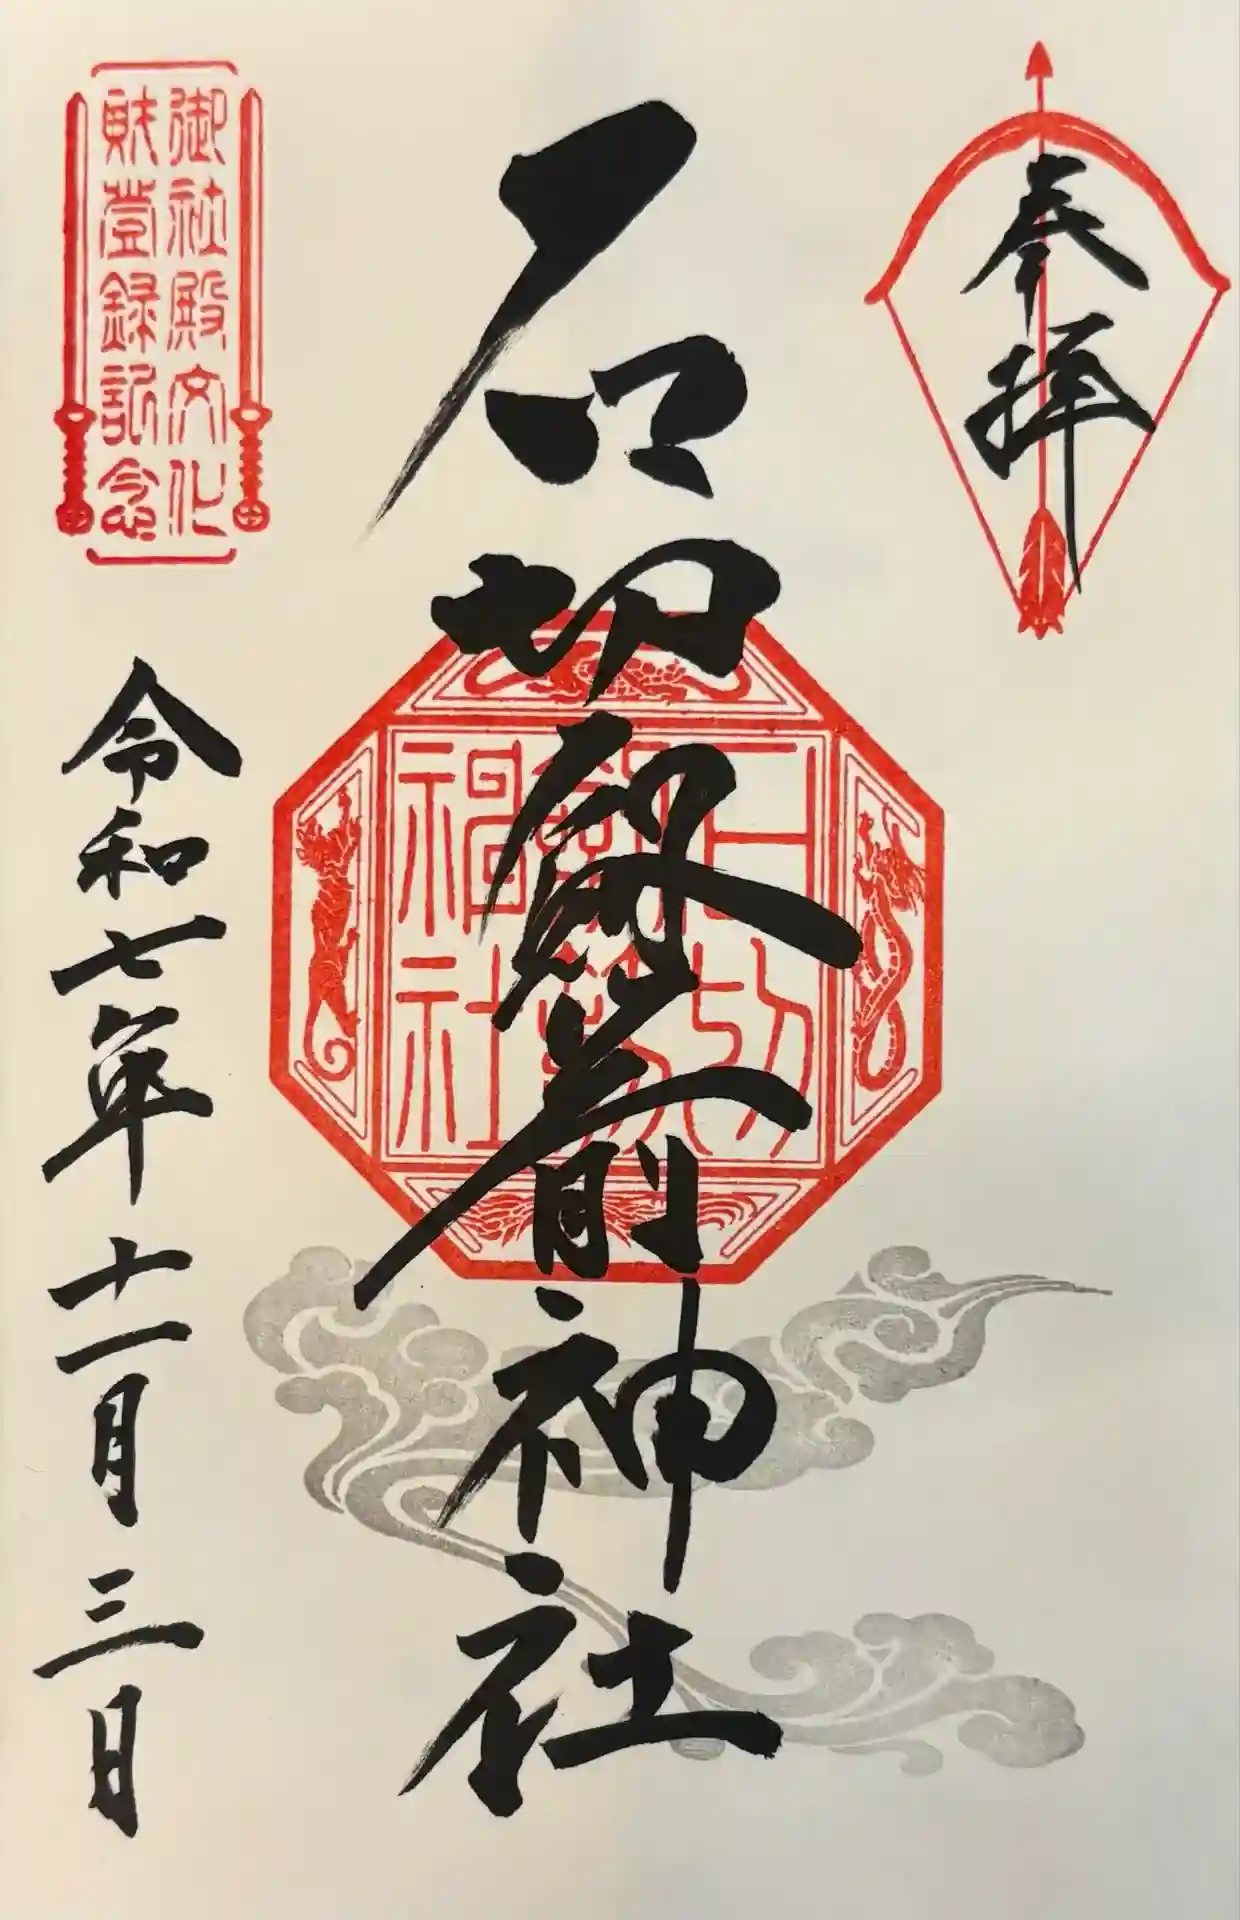 奉拝
石切劔箭神社
御社殿文化
財登録記念
令和七年十一月三日